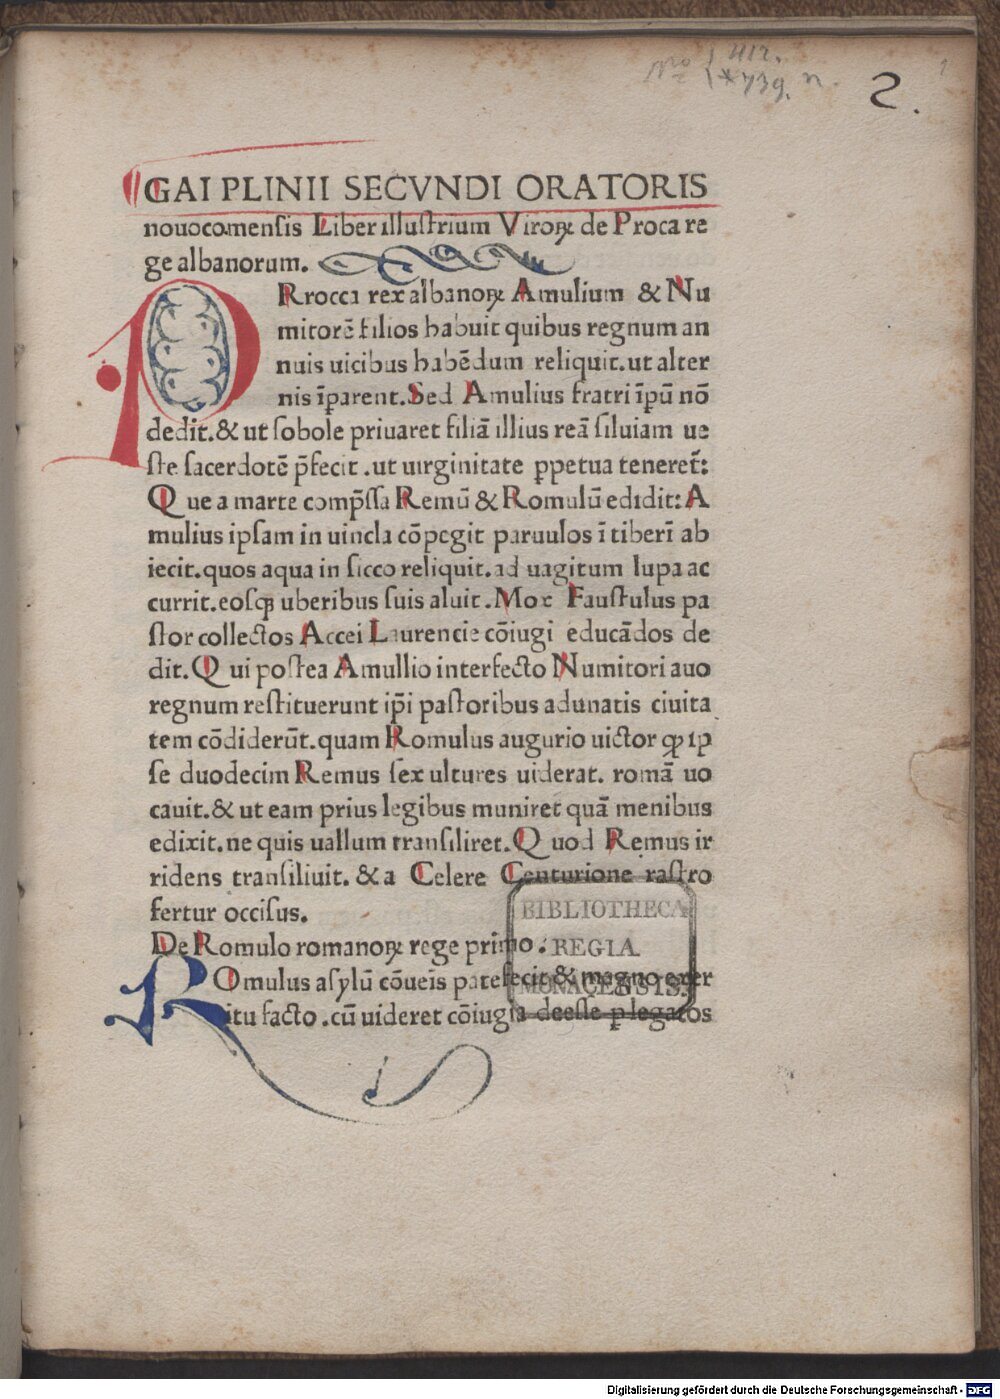 2.
GAI PLINII SECVNDI ORATORIS
nouocomensis Liber illustrium Viroꝝ de Proca re
ge albanorum.
PRrocca rex albanoꝝ Amulium & Nu
mitorē filios habuit quibus regnum an
nuis uicibus habēdum reliquit.ut alter
nis īparent.Sed Amulius fratri īpū nō
dedit.& ut sobole priuaret filiā illius reā siluiam ue
ste sacerdotē p̄fecit .ut uirginitate ꝑpetua teneret̄:
Que a marte comp̄ssa Remū & Romulū edidit:A
mulius ipsam in uincla cōpegit paruulos ī tiberī ab
iecit.quos aqua in sicco reliquit.ad uagitum lupa ac
currit.eosꝙ uberibus suis aluit.Mox Faustulus pa
stor collectos Accei Laurencie cōiugi educādos de
dit.Qui postea Amullio interfecto Numitori auo
regnum restituerunt ip̄i pastoribus adunatis ciuita
tem cōdiderūt.quam Romulus augurio uictor ꝙ ip
se duodecim Remus sex ultures uiderat. romā uo
cauit.& ut eam prius legibus muniret quā menibus
edixit.ne quis uallum transiliret.Quod Remus ir
ridens transiliuit.& a Celere Centurione rastro
fertur occisus.
De Romulo romanoꝝ rege primo.
ROmulus asylū cōueīs patefecit & magno exer
itu facto .cū uideret cōiugia deesse ꝑ legatos
BIBLIOTHECA
REGIA
MONACENSIS.
Digitalisierung gefördert durch die Deutsche Forschungsgemeinschaft - DFG